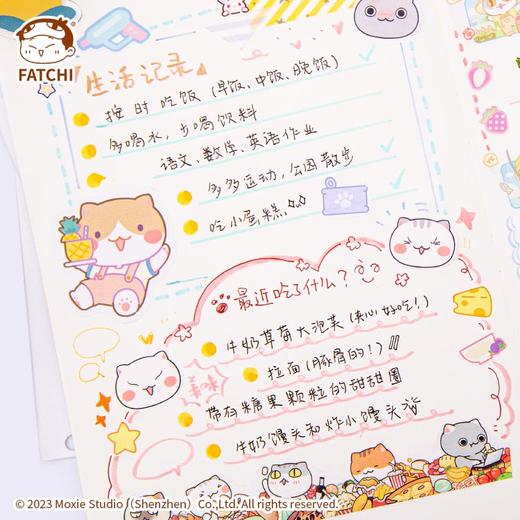 FATCHI
生活记录
按时吃饭（早饭、中饭、晚饭）
多喝水，少喝饮料
语文、数学、英语作业
多多运动，公园散步
吃小蛋糕
最近吃了什么？
牛奶草莓大泡芙（夹心 好吃！）
美味
拉面（豚骨的！）
带有糖果颗粒的甜甜圈
牛奶馒头和炸小馒头
© 2023 Moxie Studio（Shenzhen）Co,Ltd. All rights reserved.